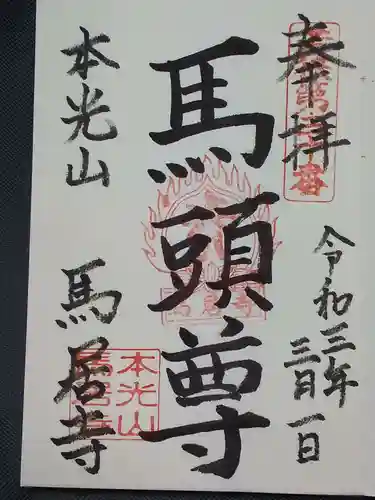 奉拝
令和三年
三月一日
馬頭尊
本光山
馬居寺
本光山
馬居寺